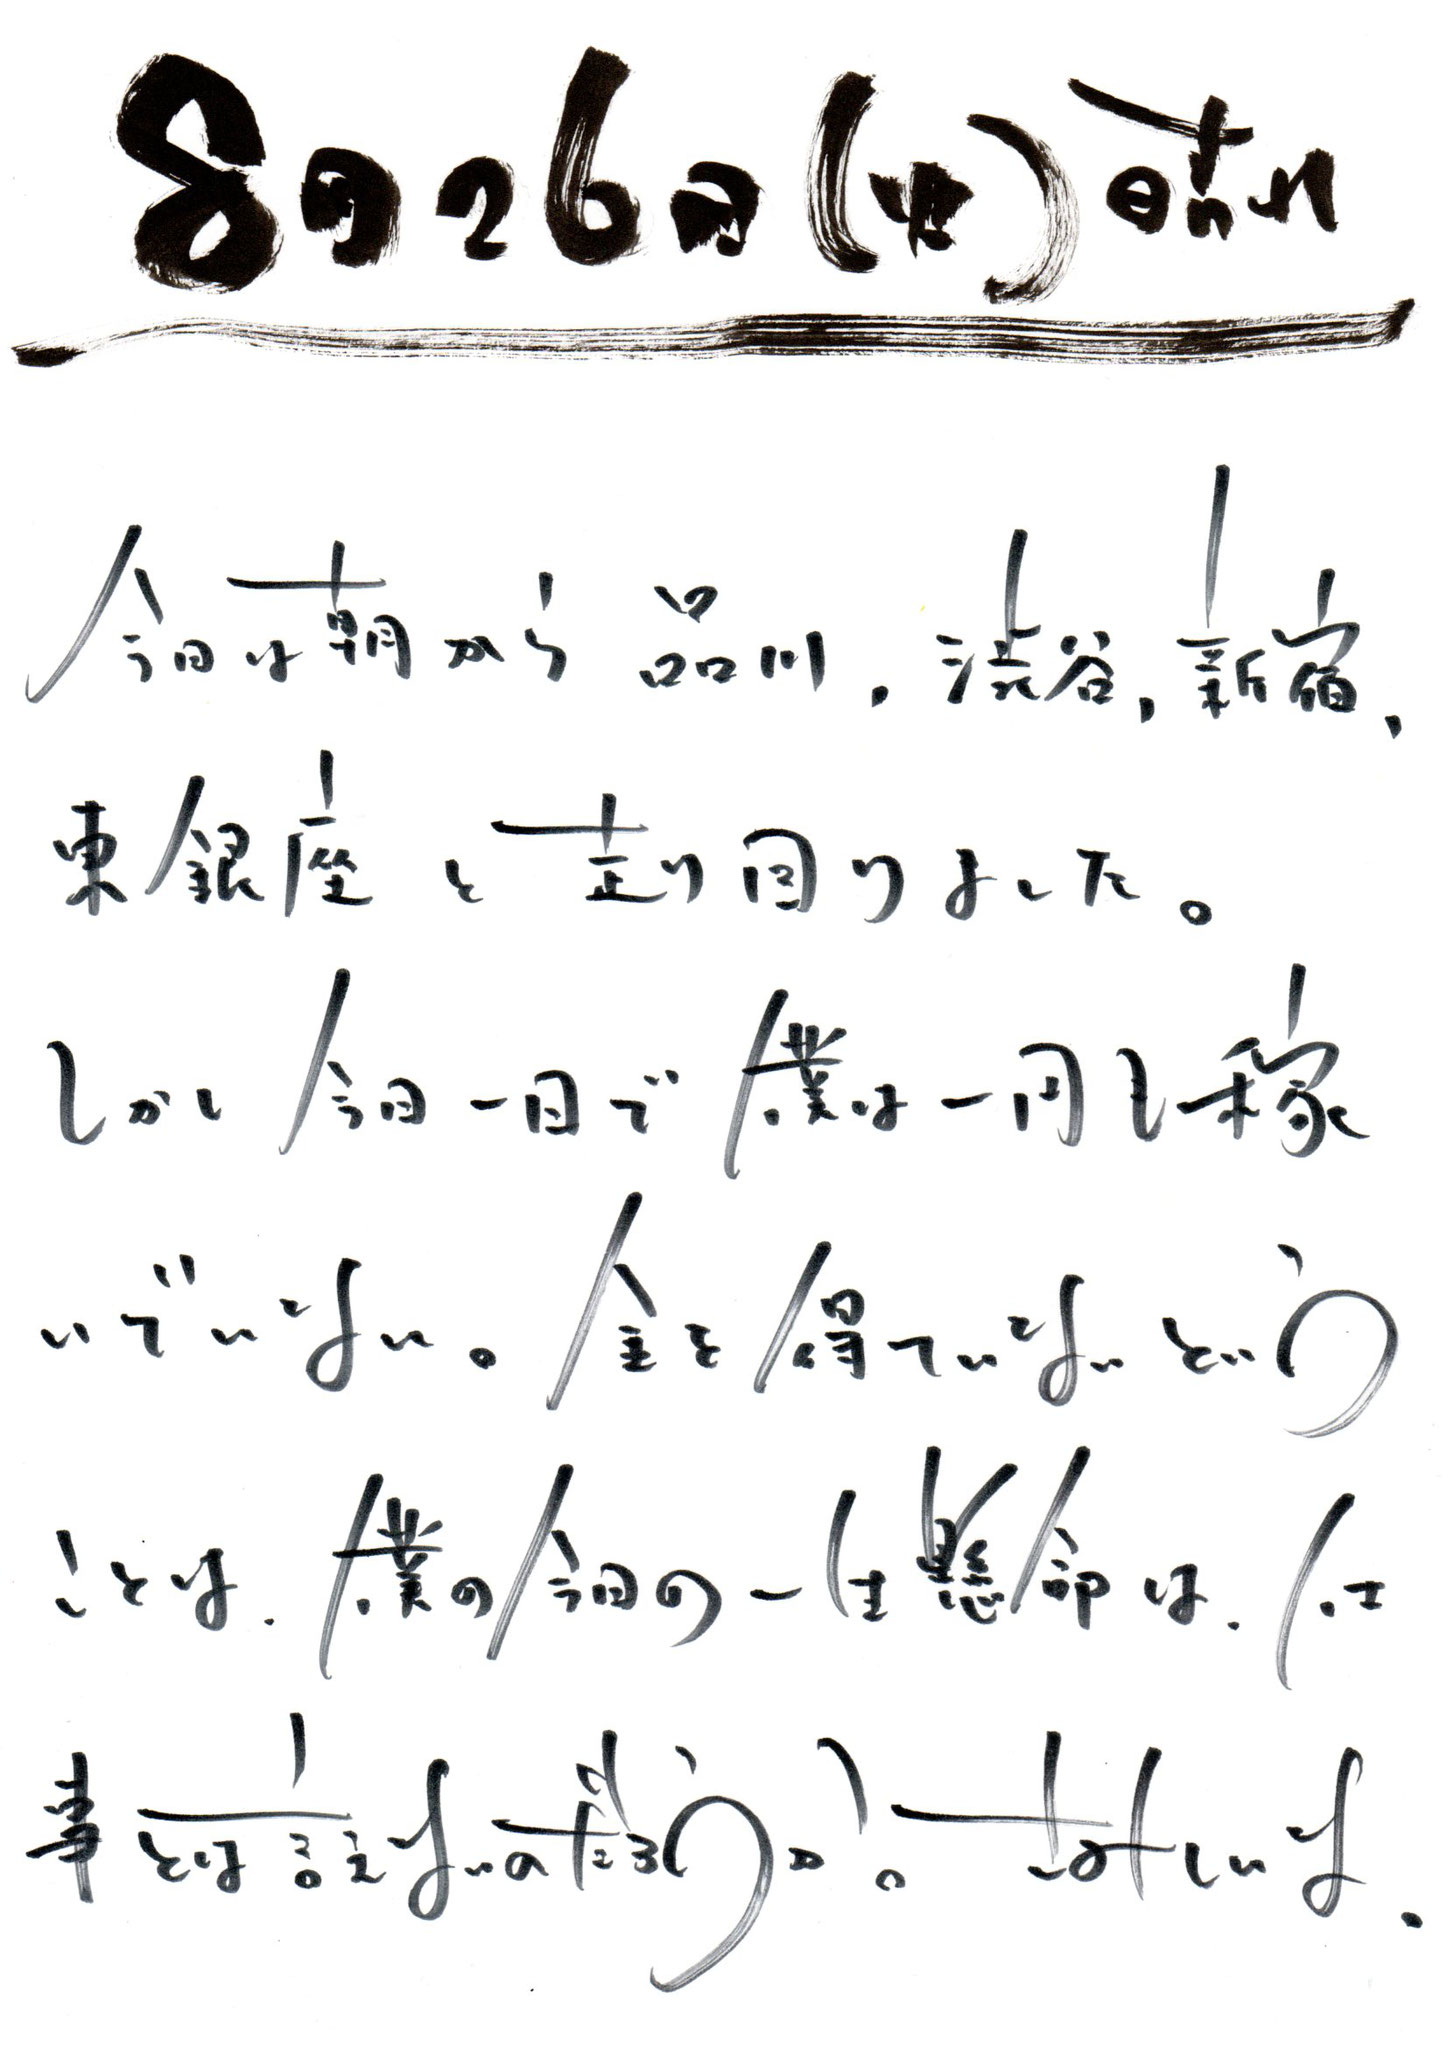 8月26日(火) 晴れ
今日は朝から 品川、渋谷、新宿、
東銀座と走り回りました。
しかし今日一日で僕は一円も稼
いでいない。金を得ていないという
ことは、僕の今日の一生懸命は、仕
事とは言えないのだろうか。